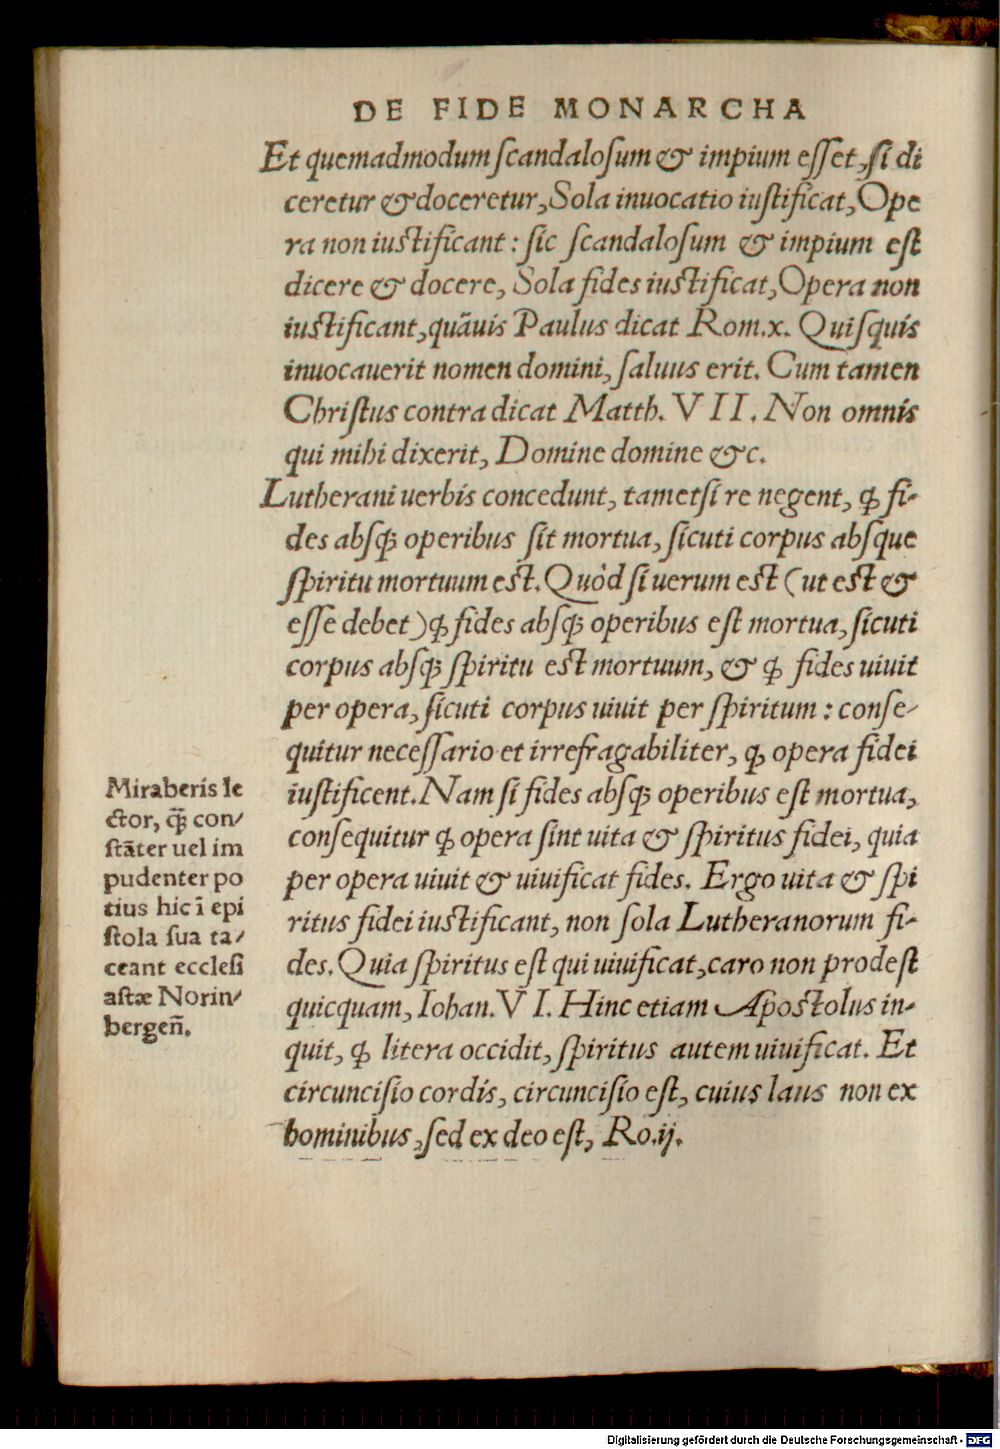 DE FIDE MONARCHA
Et quemadmodum ſcandaloſum & impium eſſet, ſi di
ceretur & doceretur, Sola inuocatio iuſtificat, Ope
ra non iuſtificant: ſic ſcandaloſum & impium eſt
dicere & docere, Sola fides iuſtificat, Opera non
iuſtificant, quãuis Paulus dicat Rom.x. Quiſquis
inuocauerit nomen domini, ſaluus erit. Cum tamen
Chriſtus contra dicat Matth. VII. Non omnis
qui mihi dixerit, Domine domine &c.
Lutherani uerbis concedunt, tametſi re negent, ꝙ fi-
des abſqꝫ operibus ſit mortua, ſicuti corpus abſque
ſpiritu mortuum eſt. Quòd ſi uerum eſt (ut eſt &
eſſe debet) ꝙ fides abſqꝫ operibus eſt mortua, ſicuti
corpus abſqꝫ ſpiritu eſt mortuum, & ꝙ fides uiuit
per opera, ſicuti corpus uiuit per ſpiritum: conſe-
quitur neceſſario et irrefragabiliter, ꝙ opera fidei
iuſtificent. Nam ſi fides abſqꝫ operibus eſt mortua,
conſequitur ꝙ opera ſint uita & ſpiritus fidei, quia
per opera uiuit & uiuificat fides. Ergo uita & ſpi
ritus fidei iuſtificant, non ſola Lutheranorum fi-
des. Quia ſpiritus eſt qui uiuificat, caro non prodeſt
quicquam, Iohan. VI. Hinc etiam Apoſtolus in-
quit, ꝙ litera occidit, ſpiritus autem uiuificat. Et
circunciſio cordis, circunciſio eſt, cuius laus non ex
hominibus, ſed ex deo eſt, Ro.ij.
Miraberis le
ctor, q̃ꝫ con/
ſtãter uel im
pudenter po
tius hic ĩ epi
ſtola ſua ta/
ceant eccleſi
aſtæ Norin/
bergeñ.
Digitalisierung gefördert durch die Deutsche Forschungsgemeinschaft - DFG